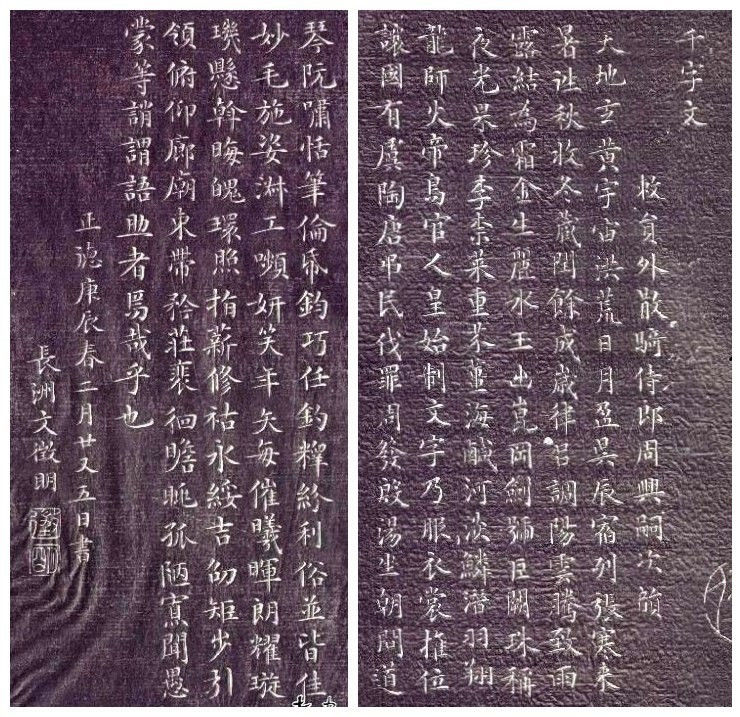 千字文
敕員外散騎侍郎周興嗣次韻
天地玄黃宇宙洪荒日月盈昃辰宿列張寒来
暑往秋收冬藏閏餘成歲律召調陽雲騰致雨
露結為霜金生麗水玉出崑岡劍號巨闕珠稱
夜光果珍李柰菜重芥薑海鹹河淡鱗潛羽翔
龍師火帝鳥官人皇始制文字乃服衣裳推位
讓國有虞陶唐弔民伐罪周發殷湯坐朝問道
琴阮嘯恬筆倫紙鈞巧任釣釋紛利俗並皆佳
妙毛施姿淑工嚬妍笑年矢每催曦暉朗耀璇
璣懸斡晦魄環照指薪修祜永綏吉劭矩步引
領俯仰廊廟束帶矜莊裵徊瞻眺孤陋寡聞愚
蒙等誚謂語助者焉哉乎也
正德庚辰春二月廿又五日書
長洲文徵明